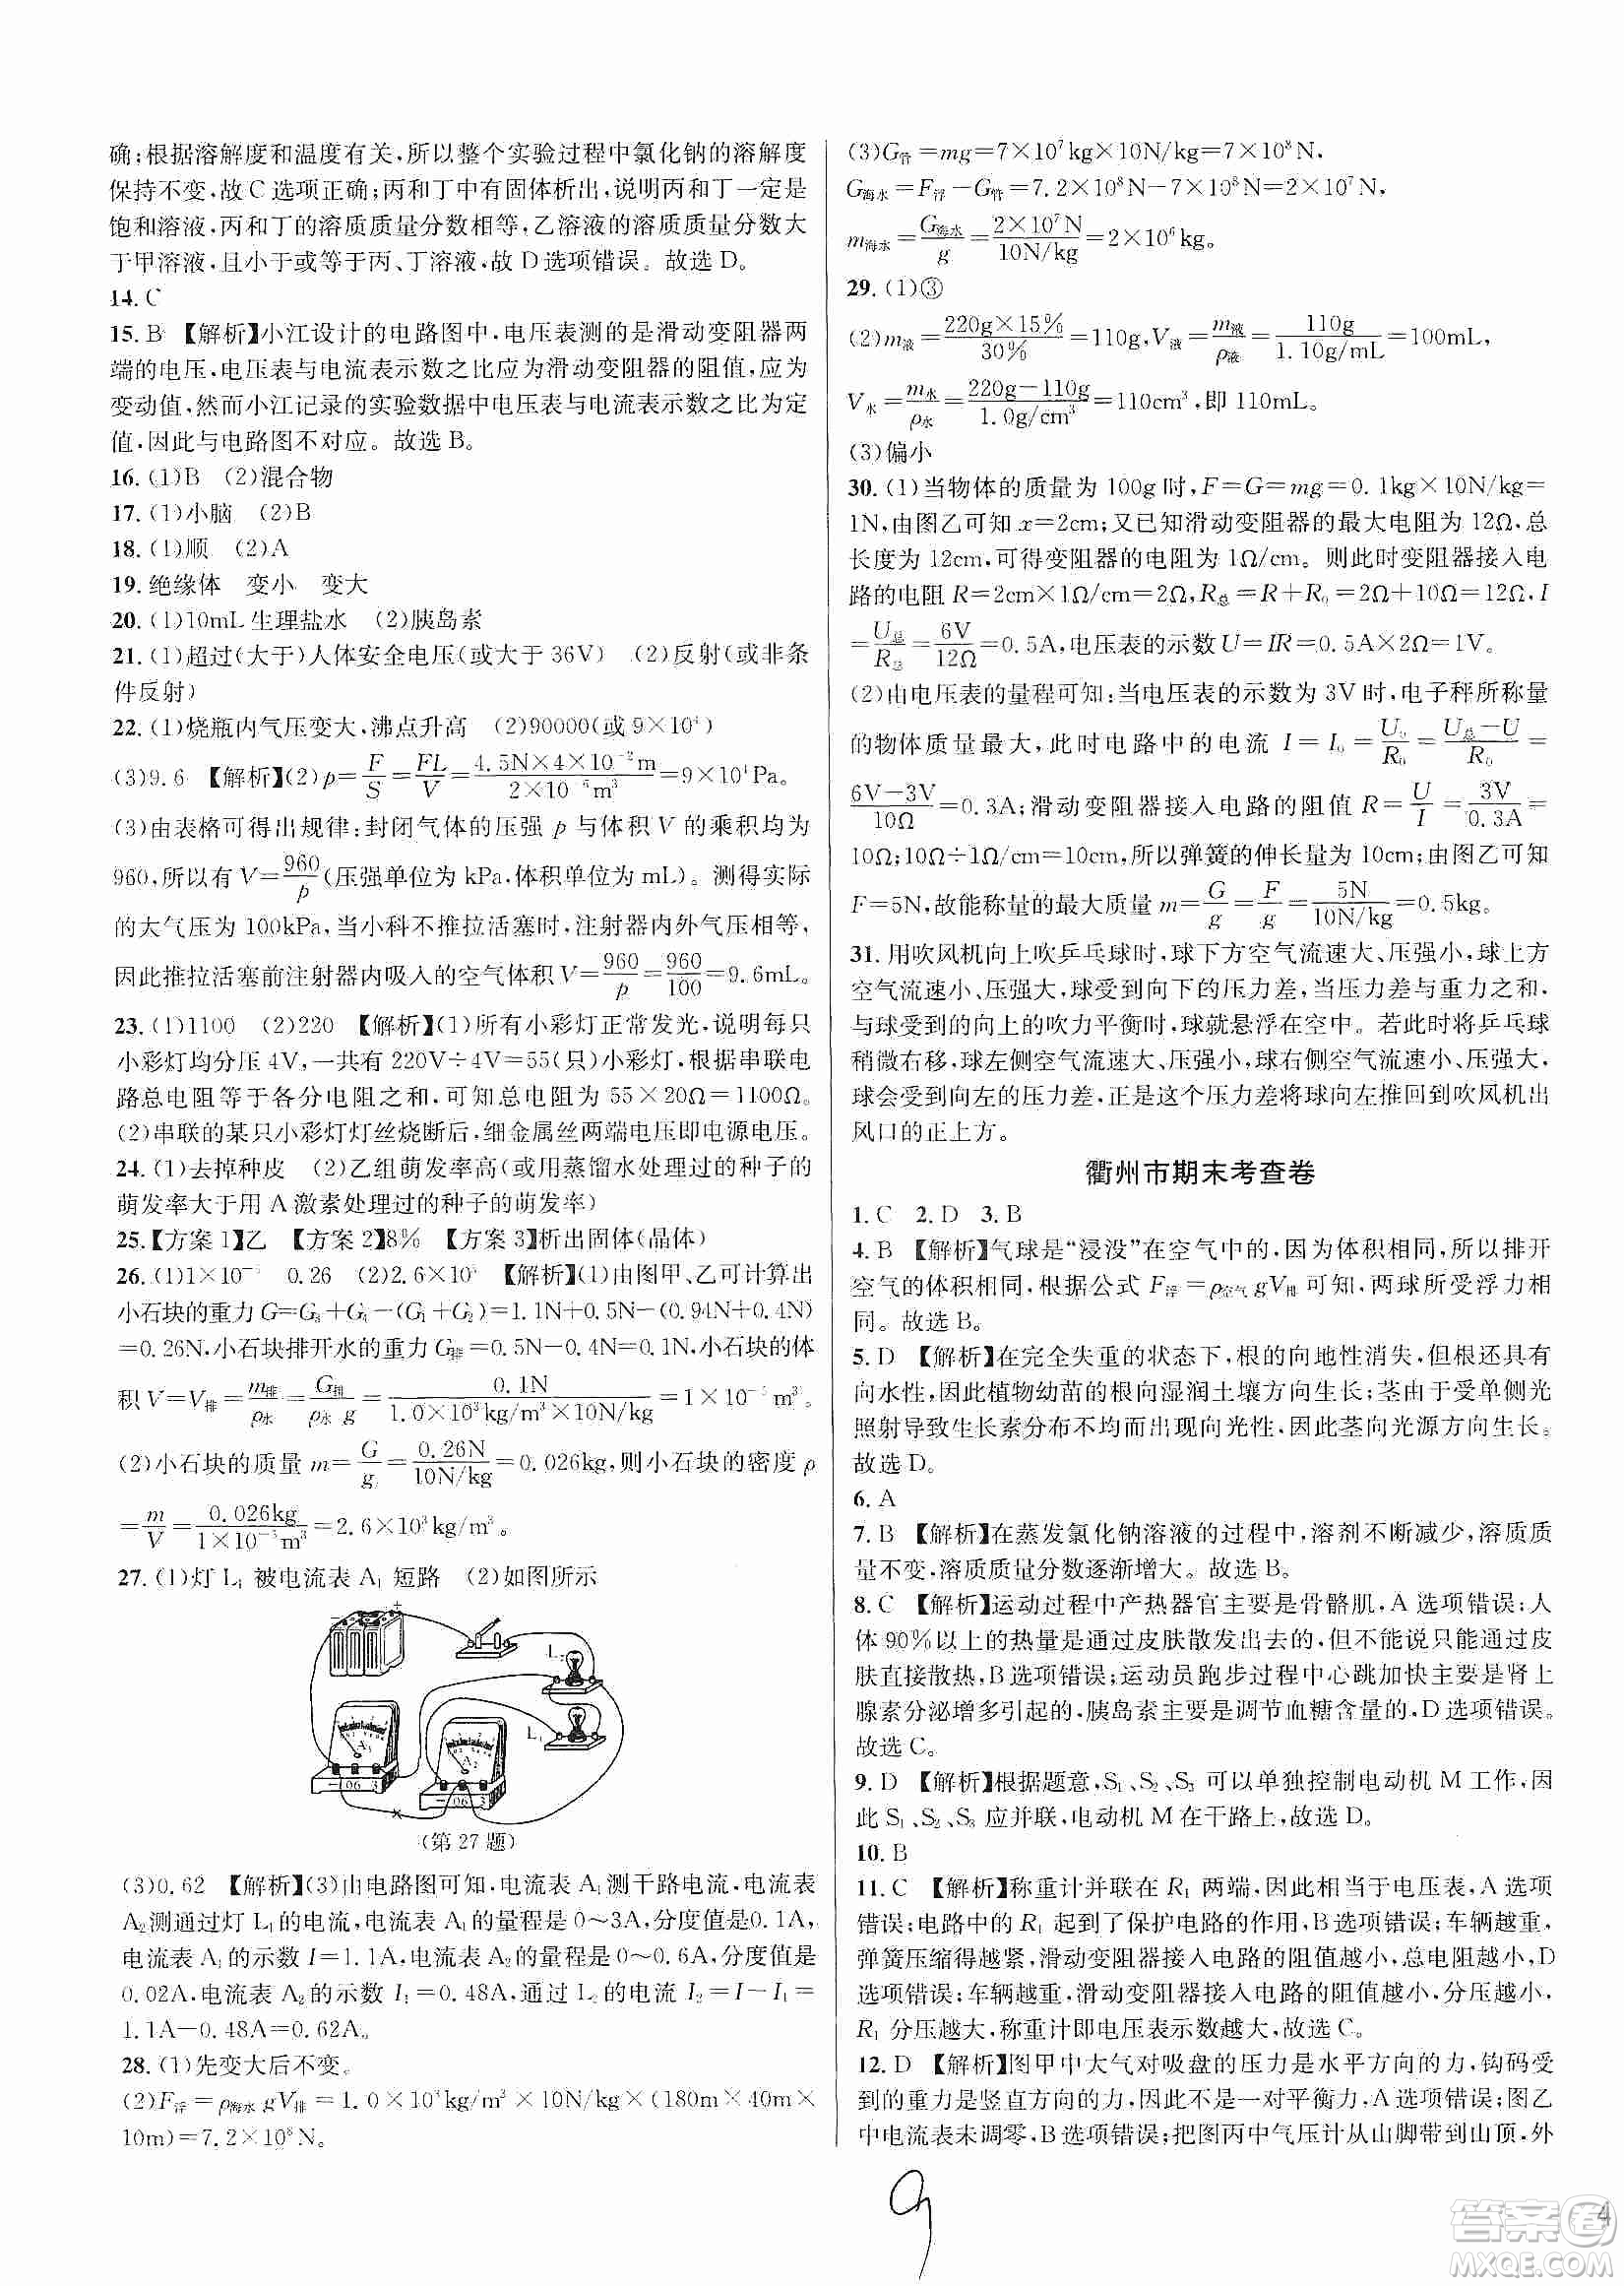 确；根据溶解度和温度有关，所以整个实验过程中氯化钠的溶解度
保持不变，故C选项正确；丙和丁中有固体析出，说明丙和丁一定是
饱和溶液，丙和丁的溶质质量分数相等，乙溶液的溶质质量分数大
于甲溶液，且小于或等于丙、丁溶液，故D选项错误。故选D。
14. C
15. B 【解析】小江设计的电路图中，电压表测的是滑动变阻器两
端的电压，电压表与电流表示数之比应为滑动变阻器的阻值，应为
变动值，然而小江记录的实验数据中电压表与电流表示数之比为定
值，因此与电路图不对应。故选B。
16. (1)B (2)混合物
17. (1)小脑 (2)B
18. (1)顺 (2)A
19. 绝缘体 变小 变大
20. (1)10mL生理盐水 (2)胰岛素
21. (1)超过(大于)人体安全电压(或大于36V) (2)反射(或非条
件反射)
22. (1)烧瓶内气压变大，沸点升高 (2)90000(或9×10⁴)
(3)9.6 【解析】(2)p=F/S=FL/V=4.5N×4×10⁻²m/2×10⁻⁶m³=9×10⁴Pa。
(3)由表格可得出规律：封闭气体的压强p与体积V的乘积均为
960，所以有V=960/p(压强单位为kPa，体积单位为mL)。测得实际
的大气压为100kPa，当小科不推拉活塞时，注射器内外气压相等，
因此推拉活塞前注射器内吸入的空气体积V=960/p=960/100=9.6mL。
23. (1)1100 (2)220 【解析】(1)所有小彩灯正常发光，说明每只
小彩灯均分压4V，一共有220V÷4V=55(只)小彩灯，根据串联电
路总电阻等于各分电阻之和，可知总电阻为55×20Ω=1100Ω。
(2)串联的某只小彩灯灯丝烧断后，细金属丝两端电压即电源电压。
24. (1)去掉种皮 (2)乙组萌发率高(或用蒸馏水处理过的种子的
萌发率大于用A激素处理过的种子的萌发率)
25.【方案1】乙 【方案2】8% 【方案3】析出固体(晶体)
26. (1)1×10⁻⁵ 0.26 (2)2.6×10³ 【解析】(1)由图甲、乙可计算出
小石块的重力G=G₃+G₄-(G₁+G₂)=1.1N+0.5N-(0.94N+0.4N)
=0.26N，小石块排开水的重力G排=0.5N-0.4N=0.1N，小石块的体
积V=V排=m排/ρ水=G排/ρ水g=0.1N/1.0×10³kg/m³×10N/kg=1×10⁻⁵m³。
(2)小石块的质量m=G/g=0.26N/10N/kg=0.026kg，则小石块的密度ρ
=m/V=0.026kg/1×10⁻⁵m³=2.6×10³kg/m³。
27. (1)灯L₁被电流表A₁短路 (2)如图所示
- +
L₂
L₁
A₁
A₂
- 0.6 3
- 0.6 3
(第27题)
(3)0.62 【解析】(3)由电路图可知，电流表A₁测干路电流，电流表
A₂测通过灯L₁的电流，电流表A₁的量程是0～3A，分度值是0.1A，
电流表A₁的示数I=1.1A，电流表A₂的量程是0～0.6A，分度值是
0.02A，电流表A₂的示数I₁=0.48A，通过L₂的电流I₂=I-I₁=
1.1A-0.48A=0.62A。
28. (1)先变大后不变。
(2)F浮=ρ海水gV排=1.0×10³kg/m³×10N/kg×(180m×40m×
10m)=7.2×10⁸N。
(3)G管=mg=7×10⁷kg×10N/kg=7×10⁸N，
G海水=F浮-G管=7.2×10⁸N-7×10⁸N=2×10⁷N，
m海水=G海水/g=2×10⁷N/10N/kg=2×10⁶kg。
29. (1)③
(2)m液=220g×15%/30%=110g，V液=m液/ρ液=110g/1.10g/mL=100mL，
V水=m水/ρ水=220g-110g/1.0g/cm³=110cm³，即110mL。
(3)偏小
30. (1)当物体的质量为100g时，F=G=mg=0.1kg×10N/kg=
1N，由图乙可知x=2cm；又已知滑动变阻器的最大电阻为12Ω，总
长度为12cm，可得变阻器的电阻为1Ω/cm。则此时变阻器接入电
路的电阻R=2cm×1Ω/cm=2Ω，R总=R+R₀=2Ω+10Ω=12Ω，I
=U总/R总=6V/12Ω=0.5A，电压表的示数U=IR=0.5A×2Ω=1V。
(2)由电压表的量程可知：当电压表的示数为3V时，电子秤所称量
的物体质量最大，此时电路中的电流I=I₀=U₀/R₀=U总-U/R₀=
6V-3V/10Ω=0.3A；滑动变阻器接入电路的阻值R=U/I=3V/0.3A=
10Ω；10Ω÷1Ω/cm=10cm，所以弹簧的伸长量为10cm；由图乙可知
F=5N，故能称量的最大质量m=G/g=F/g=5N/10N/kg=0.5kg。
31. 用吹风机向上吹乒乓球时，球下方空气流速大、压强小，球上方
空气流速小、压强大，球受到向下的压力差，当压力差与重力之和，
与球受到的向上的吹力平衡时，球就悬浮在空中。若此时将乒乓球
稍微右移，球左侧空气流速大、压强小，球右侧空气流速小、压强大，
球会受到向左的压力差，正是这个压力差将球向左推回到吹风机出
风口的正上方。
衢州市期末考查卷
1. C 2. D 3. B
4. B 【解析】气球是“浸没”在空气中的，因为体积相同，所以排开
空气的体积相同，根据公式F浮=ρ空气gV排可知，两球所受浮力相
同。故选B。
5. D 【解析】在完全失重的状态下，根的向地性消失，但根具有
向水性，因此植物幼苗的根向湿润土壤方向生长；茎由于受单侧光
照射导致生长素分布不均而出现向光性，因此茎向光源方向生长。
故选D。
6. A
7. B 【解析】在蒸发氯化钠溶液的过程中，溶剂不断减少，溶质质
量不变，溶质质量分数逐渐增大。故选B。
8. C 【解析】运动过程中产热器官主要是骨骼肌，A选项错误；人
体90%以上的热量是通过皮肤散发出去的，但不能说只能通过皮
肤直接散热，B选项错误；运动员跑步过程中心跳加快主要是肾上
腺素分泌增多引起的，胰岛素主要是调节血糖含量的，D选项错误。
故选C。
9. D 【解析】根据题意，S₁、S₂、S₃可以单独控制电动机M工作，因
此S₁、S₂、S₃应并联，电动机M在干路上，故选D。
10. B
11. C 【解析】称重计并联在R₁两端，因此相当于电压表，A选项
错误；电路中的R₁起到了保护电路的作用，B选项错误；车辆越重，
弹簧压缩得越紧，滑动变阻器接入电路的阻值越小，总电阻越小，D
选项错误；车辆越重，滑动变阻器接入电路的阻值越小，分压越小，
R₁分压越大，称重计即电压表示数越大，故选C。
12. D 【解析】图甲中大气对吸盘的压力是水平方向的力，钩码受
到的重力是竖直方向的力，因此不是一对平衡力，A选项错误；图乙
中电流表未调零，B选项错误；把图丙中气压计从山脚带到山顶，外
9
4
答案圈
MXQE.COM